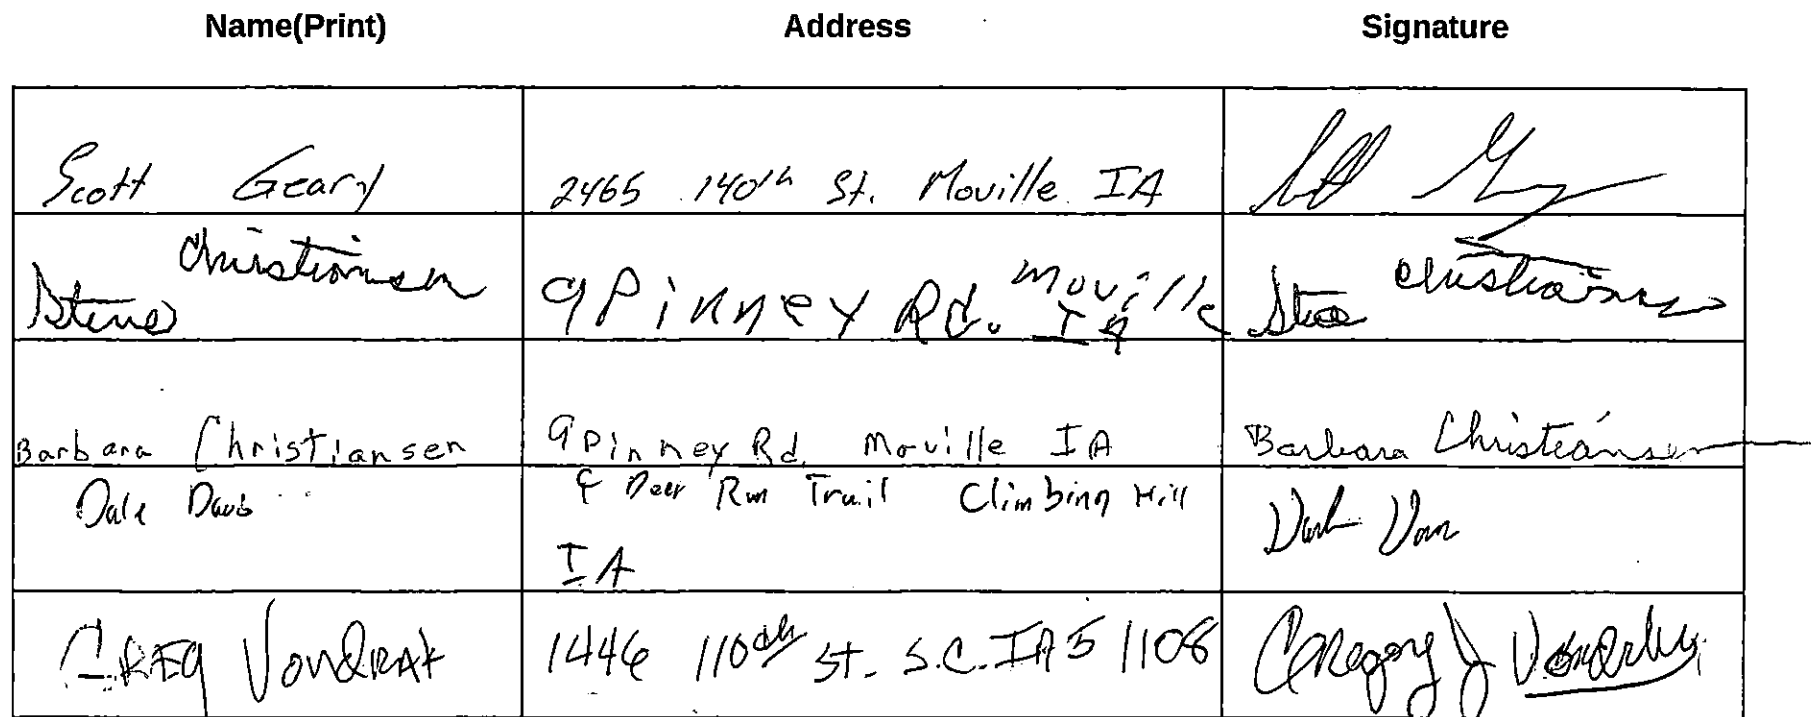 Name(Print) Address Signature
Scott Geary 2465 140th St. Moville IA
Steve Christiansen 9 Pinney Rd. Moville IA Steve Christiansen
Barbara Christiansen 9 Pinney Rd. Moville IA Barbara Christiansen
Dale Davis Deer Run Trail Climbing Hill
IA
GREG VONDRAK 1446 110th St. S.C. IA 51108 Gregory J Vondrak